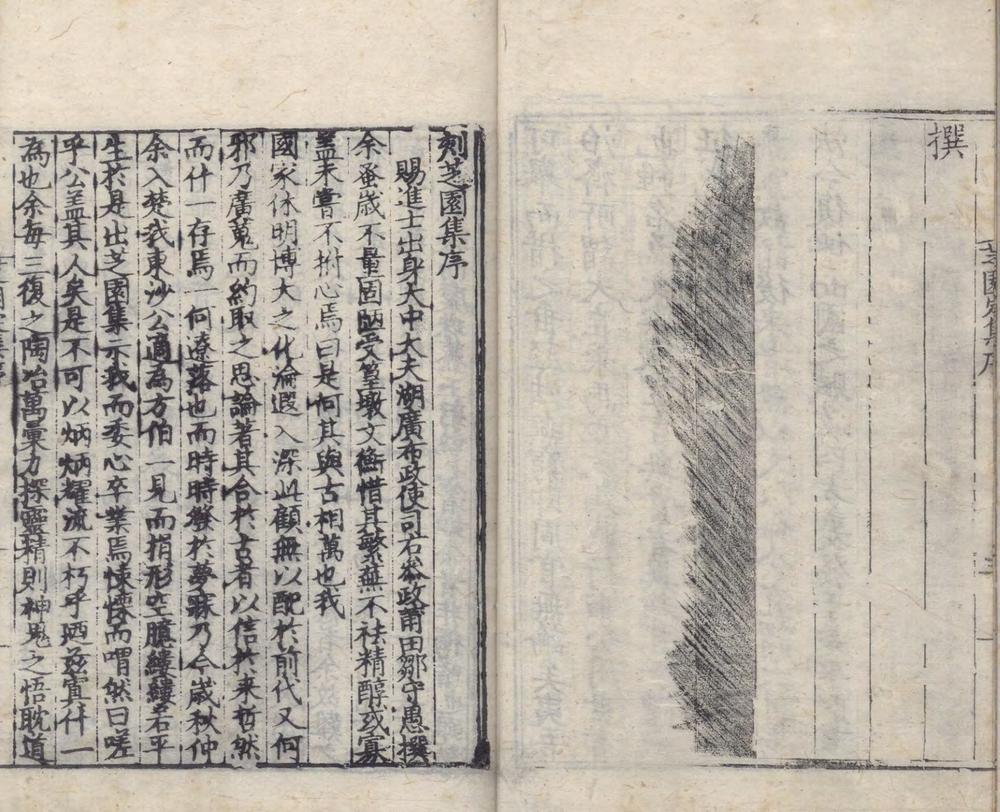 撰
芝園定集序
三
刻芝園集序
賜進士出身大中大夫湖廣布政使司右參政莆田鄒守愚撰
余蚤歲不量固陋受篁墩文衡惜其繁蕪不祛精醇或寡
蓋未嘗不拊心焉曰是何其與古相萬也我
國家休明博大之化淪遐入深此顧無以配於前代又何
邪乃廣蒐而約取之思論著其合於古者以信於來哲然
而什一存焉一何遼落也而時時發於夢寐乃今歲秋仲
余入楚我東沙公適為方伯一見而指形吐臆縷縷若平
生於是出芝園集示我而委心卒業焉悚慄而喟然曰嗟
乎公蓋其人矣是不可以炳炳耀流不朽乎迺茲寘什一
為也余每三復之陶冶萬彙力探靈精則神鬼之悟耽道